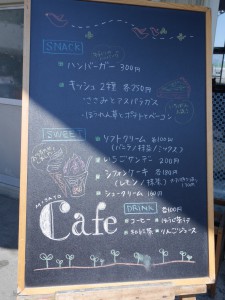 SNACK
＊ ハンバーガー 300円
＊ キッシュ 2種 各250円
・ささみとアスパラガス
・ほうれん草とポテトとベーコン
SWEET
＊ ソフトクリーム 各100円
(バニラ/抹茶/ミックス)
＊ いちごサンデー 200円
＊ シフォンケーキ 各180円
(レモン/抹茶)
＊ シュークリーム 100円
MISATO
Cafe
DRINK 各100円
＊ コーヒー
＊ りんごジュース